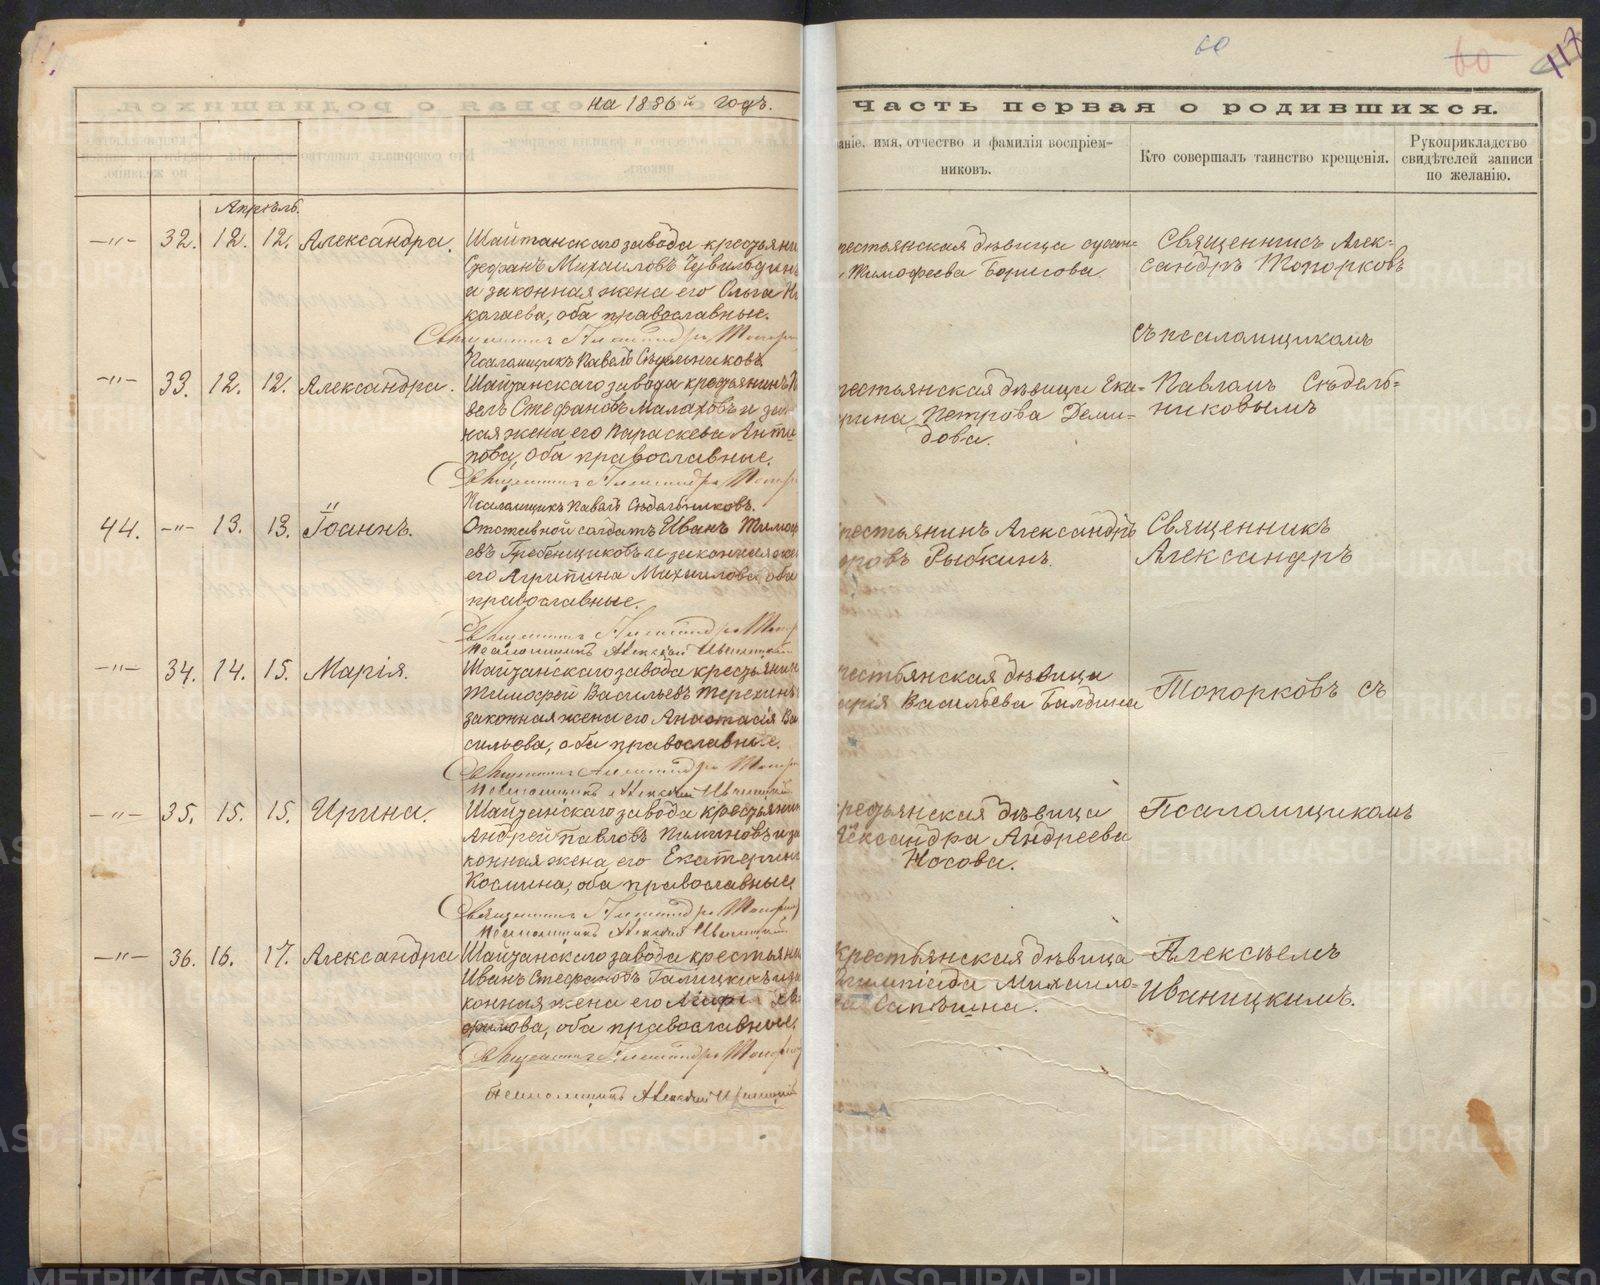 60
60
117
на 1886й годъ.
Часть первая о родившихся.
имя, отчество и фамилія воспріем-
никовъ.
Кто совершалъ таинство крещенія.
Рукоприкладство
свидѣтелей записи
по желанію.
Апрѣль.
—"— 32. 12. 12. Александра. Шайтанскаго завода крестьяни
Стефанъ Михаиловъ
и законная жена его Ольга Ни
колаева, оба православные.
Священникъ Александръ Топор
Псаломщикъ Павелъ Сѣдельниковъ.
крестьянская дѣвица
Тимофеева Борисова.
Священникъ Алек-
сандръ Топорковъ
съ псаломщикомъ
—"— 33. 12. 12. Александра. Шайтанскаго завода крестьянинъ
велъ Стефановъ Малаховъ и зак
ная жена его Параскева Анти
пова, оба православные.
Священникъ Александръ Топор
Псаломщикъ Павелъ Сѣдельниковъ.
крестьянская дѣвица Ека-
рина Петрова Деми-
дова.
Павломъ Сѣдель-
никовымъ
44. —"— 13. 13. Іоаннъ. Отставной солдатъ Иванъ Тимоѳ
евъ Гребенщиковъ и законная жена
его Агрипина Михаилова, оба
православные.
Священникъ Александръ Топор
Псаломщикъ Алексѣй Иваницкій
крестьянинъ Александръ
Рыбкинъ.
Священникъ
Александръ
—"— 34. 14. 15. Марія. Шайтанскаго завода крестьянин
Тимофей Васильевъ Терехинъ
законная жена его Анастасія Ва
сильева, оба православные.
Священникъ Александръ Топор
Псаломщикъ Алексѣй Иваницкій
крестьянская дѣвица
Марія Васильева Балдина
Топорковъ съ
—"— 35. 15. 15. Ирина. Шайтанскаго завода крестьянин
Андрей Павловъ и за
конная жена его Екатерина
Космина, оба православные.
Священникъ Александръ Топор
Псаломщикъ Алексѣй Иваницкій
крестьянская дѣвица
Александра Андреева
Носова.
Псаломщикомъ
—"— 36. 16. 17. Александра Шайтанскаго завода крестьяни
Иванъ Стефановъ Галицкихъ и за
конная жена его
оба православные.
Священникъ Александръ Топор
Псаломщикъ Алексѣй Иваницкій
Крестьянская дѣвица
Олимпіада Михаило-
ва Сапѣгина.
Алексѣемъ
Иваницкимъ.
METRIKI.GASO-URAL.RU